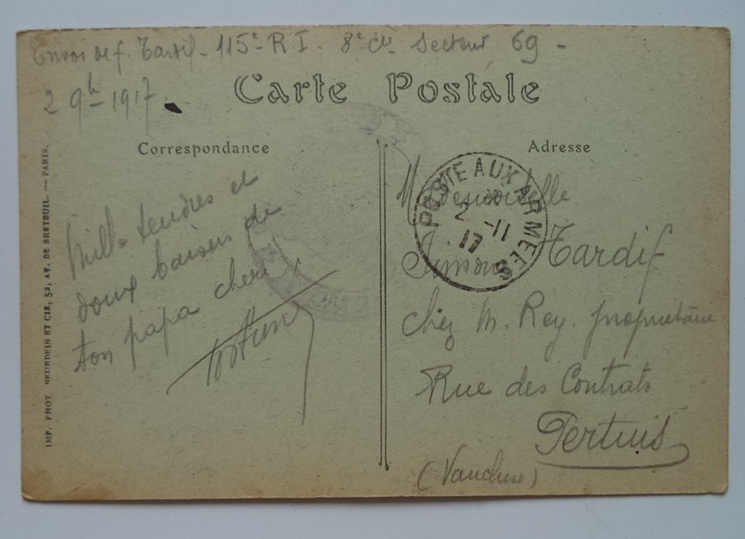 Envoi de f. Tardif - 115e R. I. 8e Cie Secteur 69 -
2 9b - 1917
Carte Postale
Correspondance
Adresse
Mille tendres et
doux baisers de
ton papa chéri
POSTE AUX ARMEES
2 -11
17
Mademoiselle
Simone Tardif
chez M. Rey. propriétaire
Rue des Contrats
Pertuis
(Vaucluse)
IMP. PHOT. NEURDEIN ET CIE, 52, AV. DE BRETEUIL. — PARIS.